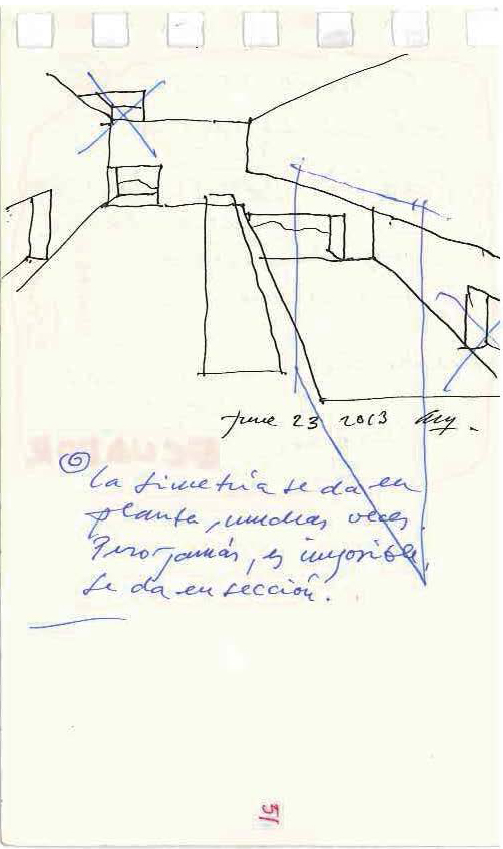 June 23 2013
6
La simetría se da en
planta, muchas veces.
Pero jamás, es imposible,
se da en sección.
51